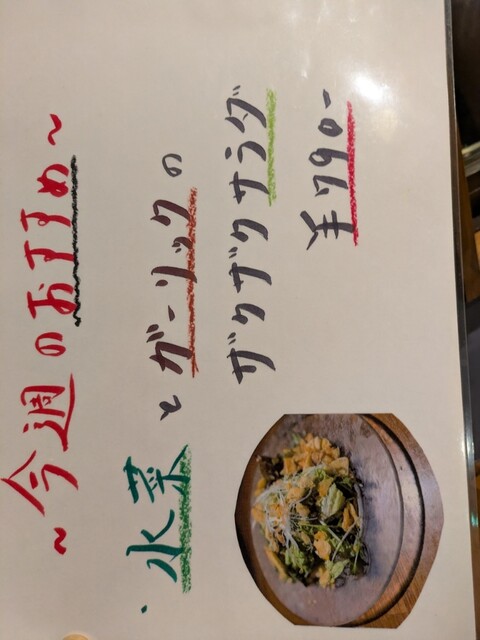 ~今週のおすすめ~
・水菜とガーリックの
ザクザクサラダ
¥790-